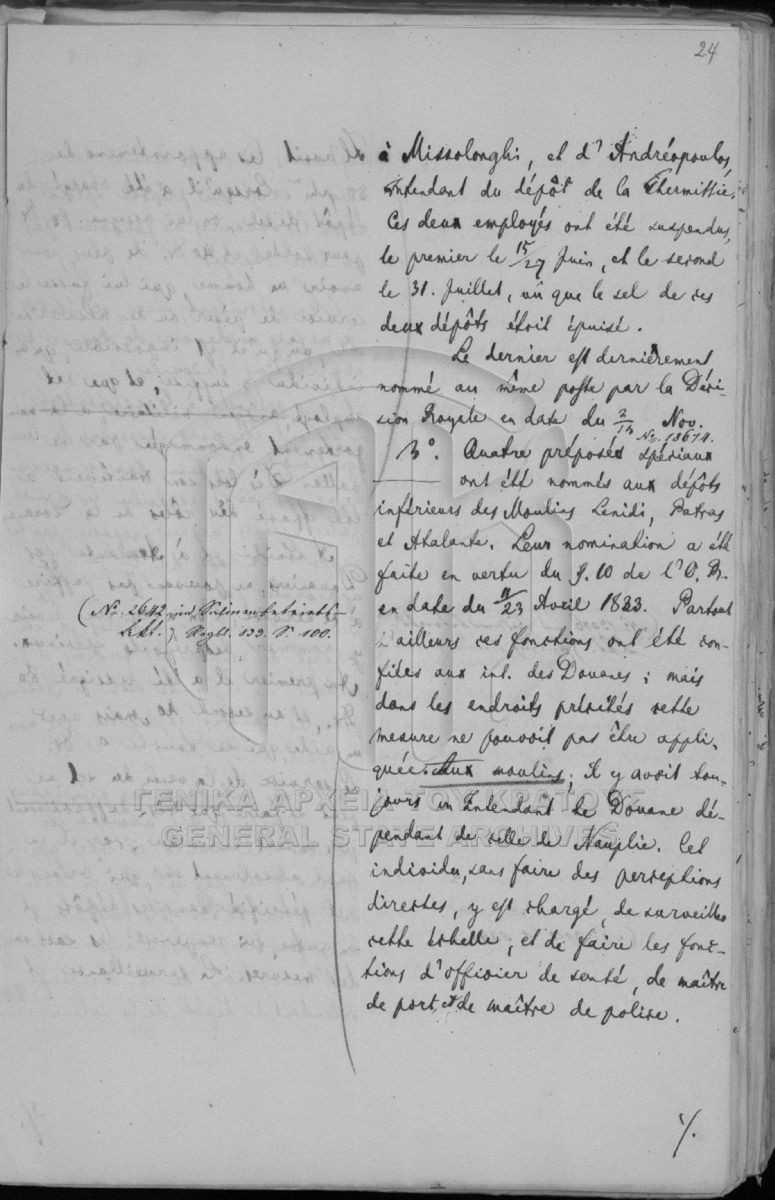 24
à Missolonghi, et d'Andréopoulos,
Intendant du dépôt de la Thermissie.
Ces deux employés ont été suspendus,
le premier le 15/27 Juin, et le second
le 31. Juillet, vû que le sel de ces
deux dépôts étoit épuisé.
Le dernier est dernièrement
nommé au même poste par la Déci-
sion Royale en date du 2/13 Nov.
No. 13674.
3°. Quatre préposés spéciaux
ont été nommés aux dépôts
inférieurs des Moulins Lenidi, Patras
et Atalante. Leur nomination a été
faite en vertu du §. 10 de l'O. R.
en date du 11/23 Avril 1833. Partout
(No. 2642 in
Regbl. 133. S. 100.
d'ailleurs ces fonctions ont été con-
fiées aux int. des Douanes; mais
dans les endroits précités cette
mesure ne pouvoit pas être appli-
quée. Aux moulins; Il y avoit tou-
jours un Intendant de Douane dé-
pendant de celle de Nauplie. Cet
individu, sans faire des perceptions
directes, y est chargé de surveiller
cette échelle, et de faire les fonc-
tions d'officier de santé, de maître
de port, et de maître de police.
ΓΕΝΙΚΑ ΑΡΧΕΙΑ ΤΟΥ ΚΡΑΤΟΥΣ
GENERAL STATE ARCHIVES
·/.